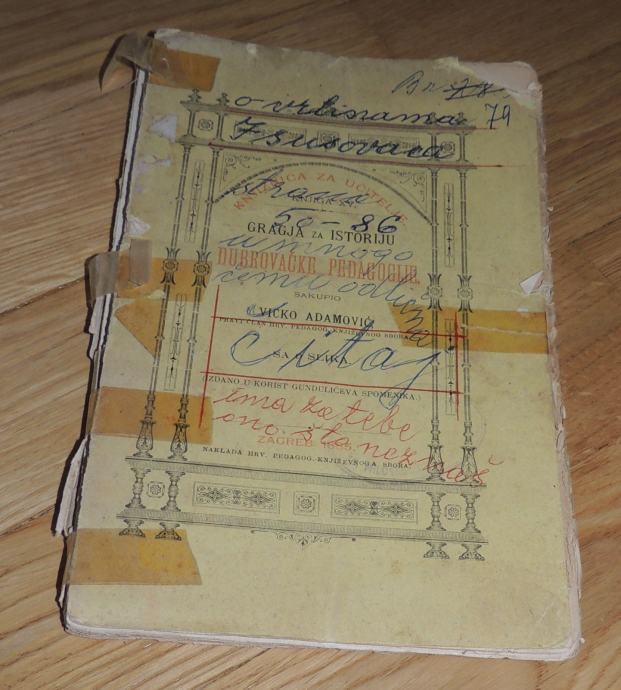 Br 78
79
o vrlinama
Isusovaca
KNJIŽNICA ZA UČITELJE
KNJIGA XV.
strana
50-86
GRAGJA ZA ISTORIJU
u mnogo
DUBROVAČKE PEDAGOGIJE.
čemu odlična
SAKUPIO
VICKO ADAMOVIĆ
PRAVI ČLAN HRV. PEDAGOG.-KNJIŽEVNOG SBORA.
čitaj
SA SLIKA.
(IZDANO U KORIST GUNDULIĆEVA SPOMENIKA.)
ima za tebe
ono šta neznaš
ZAGREB
NAKLADA HRV. PEDAGOG.-KNJIŽEVNOGA SBORA.